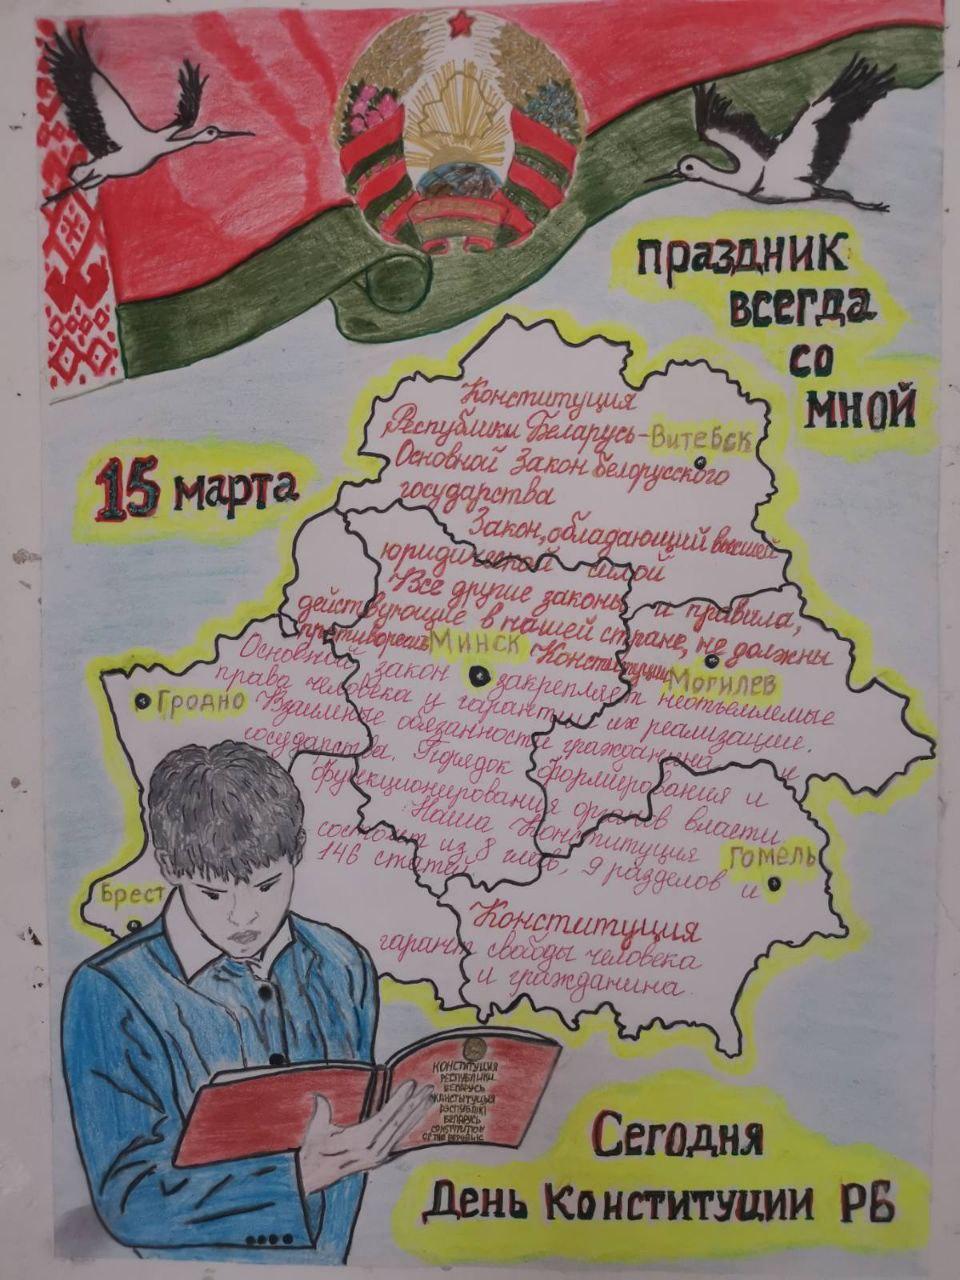 праздник
всегда
со
мной
15 марта
Конституция
Республики Беларусь-
Витебск
Основной Закон белорусского
государства
Закон, обладающий высшей
юридической силой
Все другие законы и правила,
действующие в нашей стране, не должны
противоречить Конституции
Минск
Могилев
Гродно
Основной закон закрепляет неотъемлемые
права человека и гарантии их реализации.
Взаимные обязанности гражданина и
государства. Порядок формирования и
функционирования органов власти.
Наша Конституция
состоит из 8 глав, 9 разделов и
146 статей
Гомель
Брест
Конституция
гарант свободы человека
и гражданина.
КОНСТИТУЦИЯ
РЕСПУБЛИКИ
БЕЛАРУСЬ
КАНСТЫТУЦЫЯ
РЭСПУБЛІКІ
БЕЛАРУСЬ
CONSTITUTION
OF THE REPUBLIC
Сегодня
День Конституции РБ